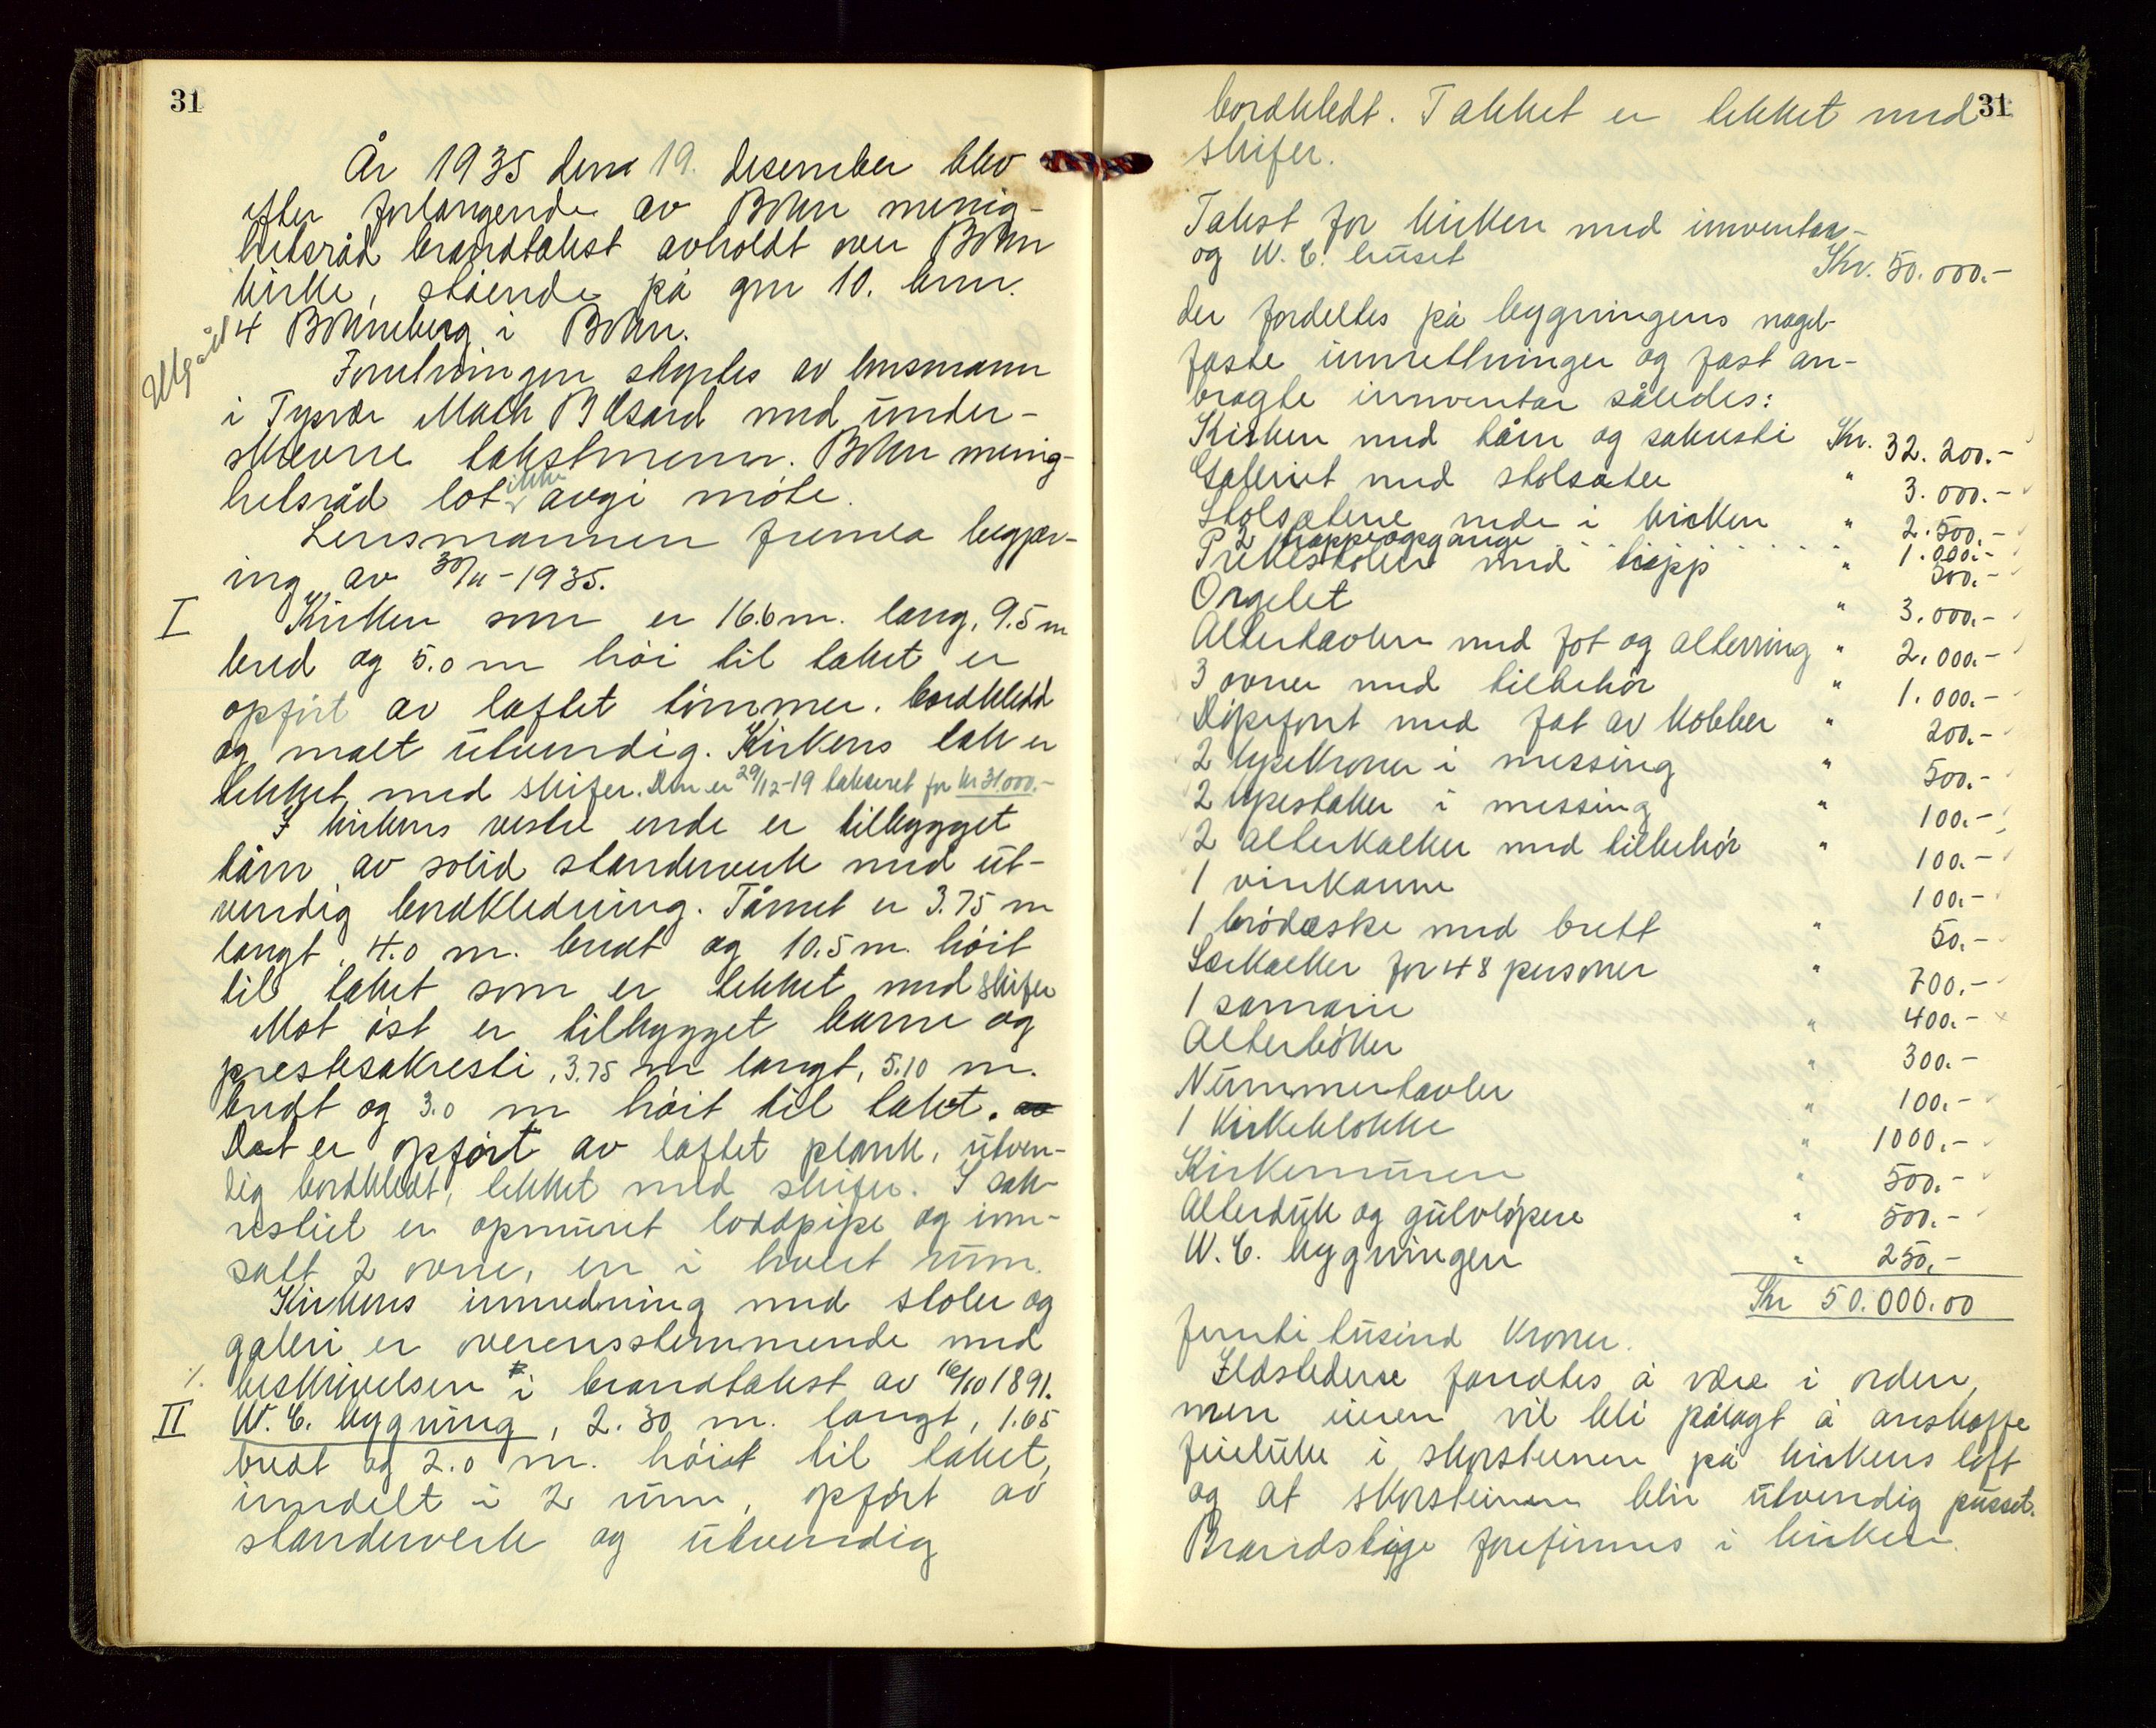 31
År 1935 den 19. desember blev
efter forlangende av Bokn menig-
hetsråd brandtakst avholdt over Bokn
kirke, stående på gnr 10. bnr.
4 Bokneberg i Bokn.
Utgått
Forretningen styrtes av lensmann
i Tysvær Math Bålsard med under-
skrevne takstmenn. Bokn menig-
hetsråd lot ikke avgi møte.
Lensmannen fremla begjær-
ing av 30/11-1935.
I Kirken som er 16.6 m. lang, 9.5 m
bred og 5.0 m høi til taket er
opført av laftet tømmer. bordkledd
og malt utvendig. Kirkens tak er
tekket med skifer. Den er 29/12-19 taksert for kr 31000.-
I kirkens vestre ende er tilbygget
tårn av solid standerverk med ut-
vendig bordkledning. Tårnet er 3.75 m
langt, 4.0 m. bredt og 10.5 m. høit
til taket som er tekket med skifer
Mot øst er tilbygget barne og
prestesakresti, 3.75 m langt, 5.10 m.
bredt og 3.0 m høit til taket. av
Det er opført av laftet plank, utven-
dig bordkledt, tekket med skifer. I sak-
restiet er opmuret loddpipe og inn-
satt 2 ovne, en i hvert rum.
Kirkens innredning med stoler og
galeri er overensstemmende med
./. beskrivelsen i brandtakst av 16/10 1891.
II W.C. bygning, 2.30 m. langt, 1.65
bredt og 2.0 m. høist til taket,
inndelt i 2 rum, opført av
standerverk og utvendig
31
bordkledt. Takket er tekket med
skifer.
Takst for kirken med innventar-
og W.C. huset Kr. 50.000.-
der fordeltes på bygningens nagel-
faste innretninger og fast an-
bragte innventar således:
Kirken med tårn og sakresti Kr. 32.200.-
Galeriet med stolsæter " 3.000.-
Stolsætene nede i kirken " 2.500.-
2 trappeopgange . . . . . . 1.000.-
Prekestolen med trapp " 500.-
Orgelet " 3.000.-
Altertavlen med fot og alterring " 2.000.-
3 ovner med tilbehør " 1.000.-
Døpefont med fat av kobber " 200.-
2 lysekroner i messing " 500.-
2 lysestaker i messing " 100.-
2 alterkalker med tilbehør " 100.-
1 vinkanne 100.-
1 brødæske med brett " 50.-
Særkalker for 48 personer " 700.-
1 samarie " 400.-
Alterbøker " 300.-
Nummertavler " 100.-
1 Kirkeklokke " 1000.-
Kirkemuren " 500.-
Alterduk og gulvløpere " 500.-
W.C. bygningen " 250.-
Kr 50.000.00
femti tusind kroner.
Ildstederne fandtes å være i orden,
men eieren vil bli pålagt å anskaffe
feieluke i skorsteinen på kirkens loft
og at skorsteinen blir utvendig pusset.
Brandstige forefinnes i kirken.